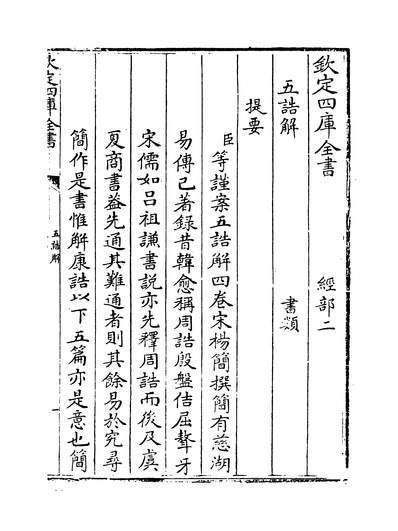 欽定四庫全書　經部二
五誥解　書類
提要
臣等謹案五誥解四卷宋楊簡撰簡有慈湖
易傳已著錄昔韓愈稱周誥殷盤佶屈聱牙
宋儒如呂祖謙書說亦先釋周誥而後及虞
夏商書益先通其難通者則其餘易於究尋
簡作是書惟解康誥以下五篇亦是意也簡
欽定四庫全書
五誥解
一